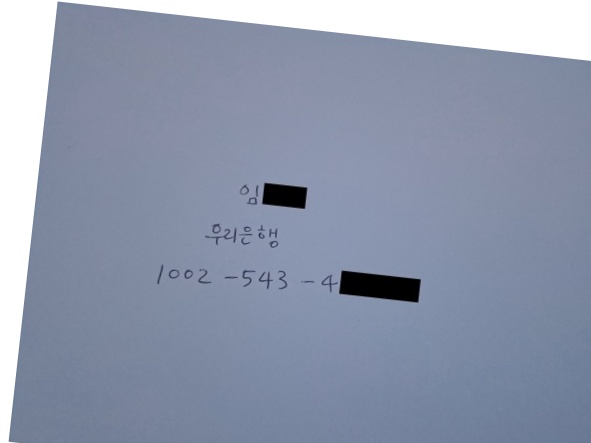 임
우리은행
1002-543-4